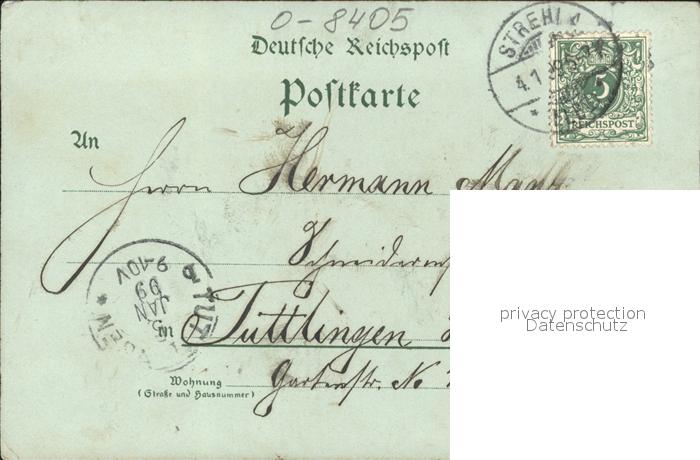 O-8405
Deutsche Reichspost
Postkarte
STREHLA
4.1.
5
REICHSPOST
An
Herrn Hermann
Schneiderm
in Tuttlingen
TUTTLINGEN
5 JAN 99
9-10V
Wohnung
(Straße und Hausnummer)
Gartenstr. No
privacy protection
Datenschutz